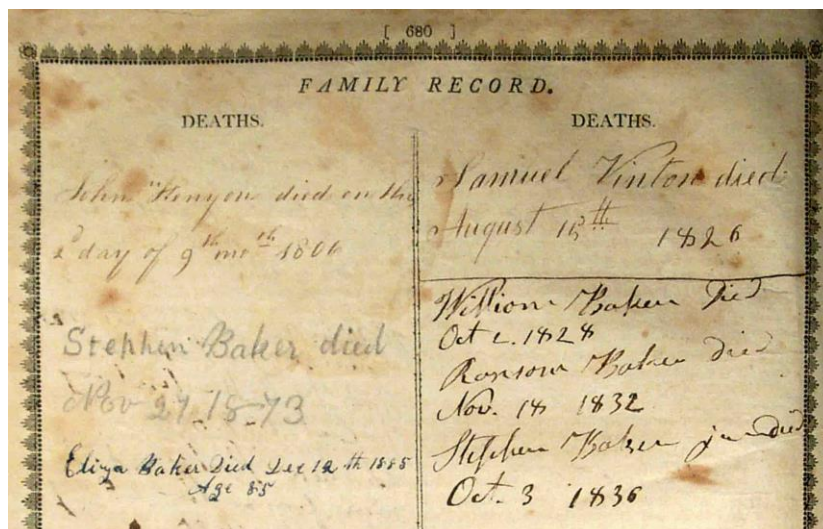 [ 680 ]
FAMILY RECORD.
DEATHS.
John Kenyon died on the
2d day of 9th mo th 1806
Stephen Baker died
Nov 27 1873
Eliza Baker Died Dec 12 th 1885
Age 85
DEATHS.
Samuel Vinton died
August 15th 1826
William Baker Died
Oct 2. 1828
Ransom Baker died
Nov. 18 1832
Stephen Baker jun died
Oct. 3 1836